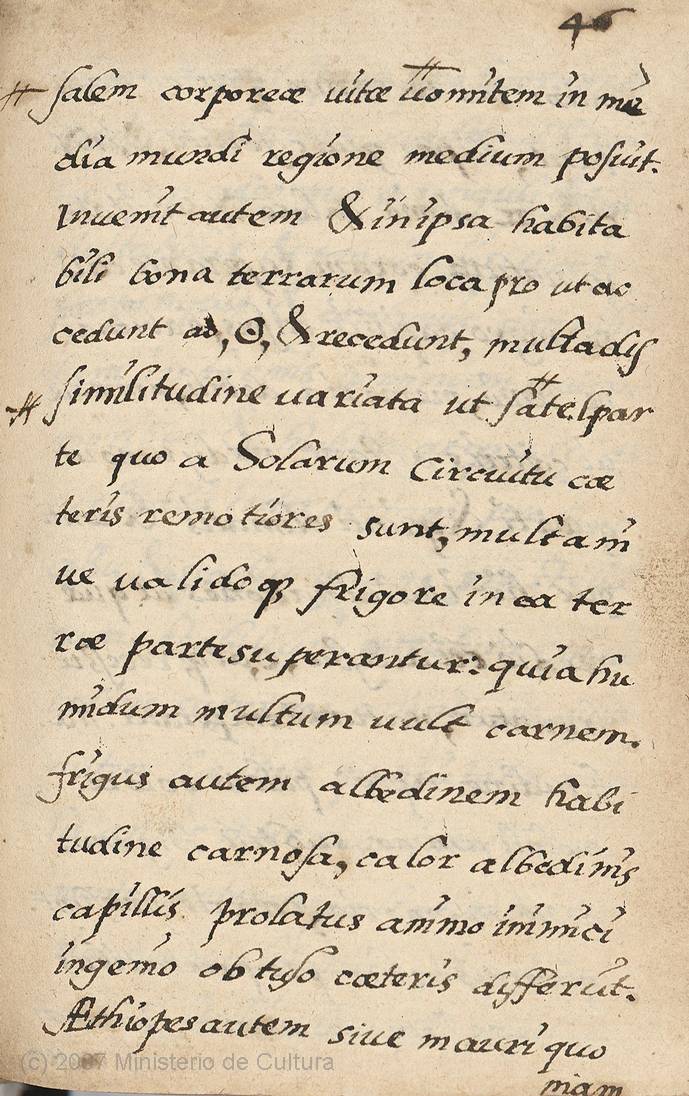 46
salem corporeæ uitæ uomitem in me
dia mundi regione medium posuit.
Inuenit autem & in ipsa habita
bili bona terrarum loca pro ut ac
cedunt ad, ☉, & recedunt, multa dis
similitudine uariata ut satel par
te quo a Solarum Circuitu cæ
teris remotiores sunt, multa ni
ue ualidoq; frigore in ea ter
ræ parte superantur: quia hu
midum multum uult carnem.
frigus autem albedinem habi
tudine carnosa, calor albedinis
capillis prolatus animo inimici
ingenio obtuso cæteris differut.
Æthiopes autem siue mauri quo
niam
(c) 2007 Ministerio de Cultura